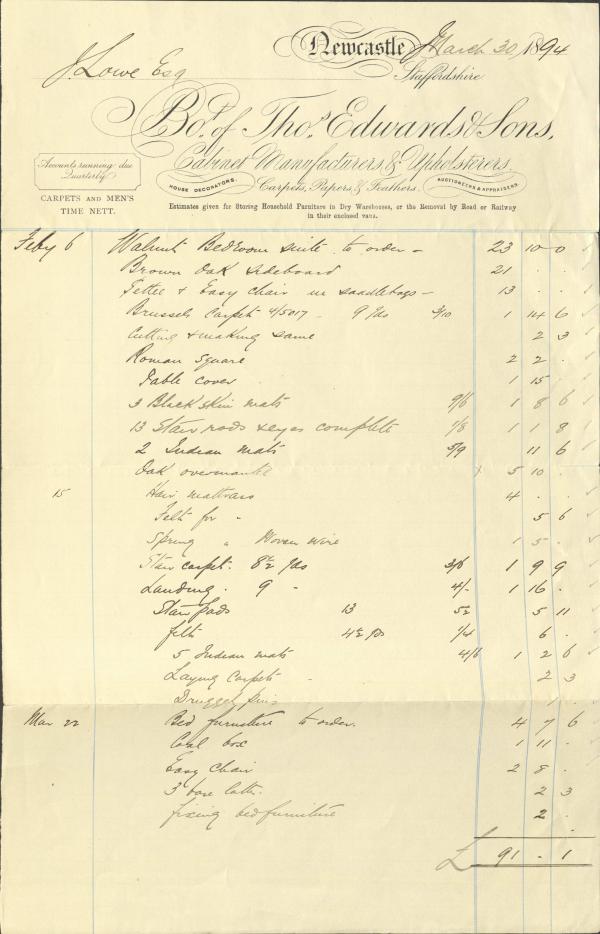 Newcastle March 30, 1894
Staffordshire
J. Lowe Esq
Bot. of Thos. Edwards & Sons,
Cabinet Manufacturers & Upholsterers
Accounts running due
Quarterly
HOUSE DECORATORS. Carpets, Papers & Feathers. AUCTIONEERS & APPRAISERS.
CARPETS AND MEN'S
TIME NETT.
Estimates given for Storing Household Furniture in Dry Warehouses, or the Removal by Road or Railway
in their enclosed vans.
Feby 6 Walnut Bedroom suite to order - 23 10 0
Brown Oak sideboard 21 . .
Settee & Easy Chair in saddlebags - 13 . .
Brussels Carpet 4/5017 - 9 yds 3/10 1 14 6
Cutting & making same 2 3
Roman Square 2 2 .
Table cover 1 15 .
3 Black skin mats 9/6 1 8 6
13 Stair rods & eyes complete 1/8 1 1 8
2 Indian mats 5/9 11 6
Oak overmantle x 5 10 .
15 Hair mattrass 4 . .
Felt for " 5 6
Spring " Woven wire 1 5 .
Stair carpet. 8½ yds 3/6 1 9 9
Landing . 9 " 4/- 1 16 .
Stair pads 13 5½ 5 11
felt 4½ yds 1/4 6 .
5 Indian mats 4/6 1 2 6
Laying Carpet - 2 3
Drugget pins 1 .
Mar 22 Bed furniture to order. 4 7 6
Coal box 1 11 .
Easy Chair 2 8 .
3 laths. 2 3
fixing bed furniture 2 .
£ 91 - 1